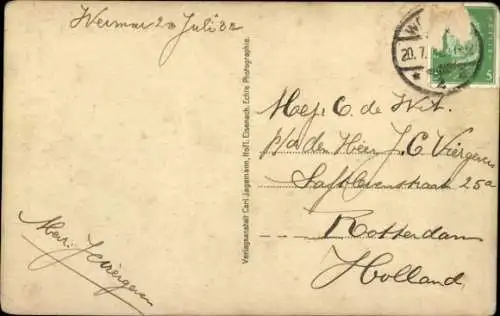 Weimar 20 Juli 32
20. 7.
5
Mej. C. de Wit.
p/a den Heer J. C. Viergever
Saftlevenstraat 25a
Rotterdam
Holland
Verlagsanstalt Carl Jagemann, Hofl. Eisenach. Echte Photographie.